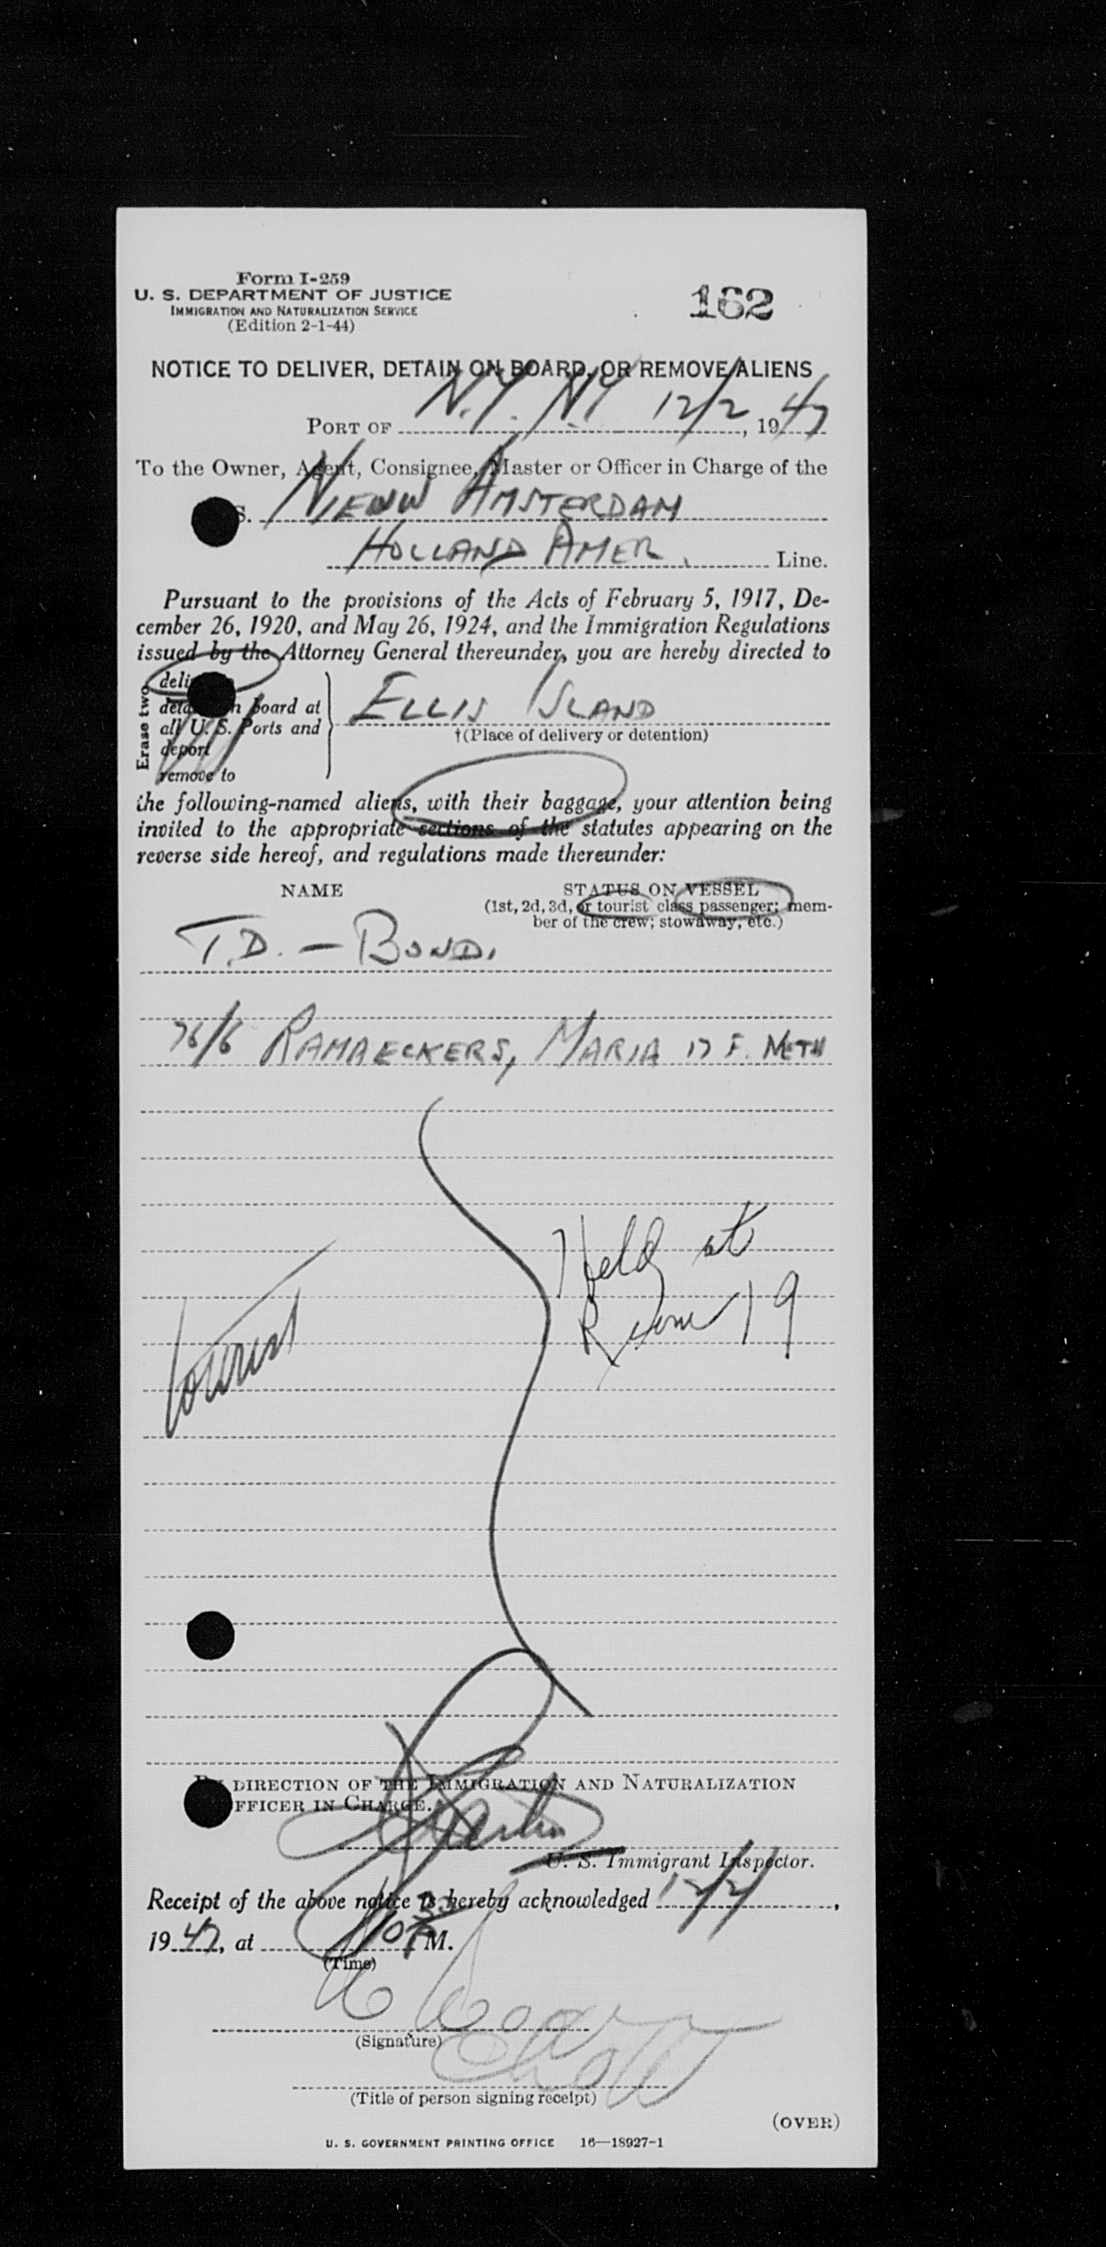 Form I-259
U. S. DEPARTMENT OF JUSTICE
IMMIGRATION AND NATURALIZATION SERVICE
(Edition 2-1-44)
162
NOTICE TO DELIVER, DETAIN ON BOARD, OR REMOVE ALIENS
PORT OF N.Y. N.Y 12/2, 1947
To the Owner, Agent, Consignee, Master or Officer in Charge of the
S. NIEUW AMSTERDAM
HOLLAND AMER. Line.
Pursuant to the provisions of the Acts of February 5, 1917, De-
cember 26, 1920, and May 26, 1924, and the Immigration Regulations
issued by the Attorney General thereunder, you are hereby directed to
Erase two
board at
all U. S. Ports and
deport
remove to
ELLIS ISLAND
†(Place of delivery or detention)
the following-named aliens, with their baggage, your attention being
invited to the appropriate sections of the statutes appearing on the
reverse side hereof, and regulations made thereunder:
NAME
STATUS ON VESSEL
(1st, 2d, 3d, or tourist class passenger; mem-
ber of the crew; stowaway, etc.)
T.D. — BOND.
76/6 RAMAECKERS, MARIA 17 F. NETH
Held at
Room 19
tourist
BY DIRECTION OF THE IMMIGRATION AND NATURALIZATION
OFFICER IN CHARGE.
U. S. Immigrant Inspector.
Receipt of the above notice is hereby acknowledged 12/2,
1947, at 10 30 PM.
(Time)
(Signature)
(Title of person signing receipt)
(OVER)
U. S. GOVERNMENT PRINTING OFFICE 16—18927-1